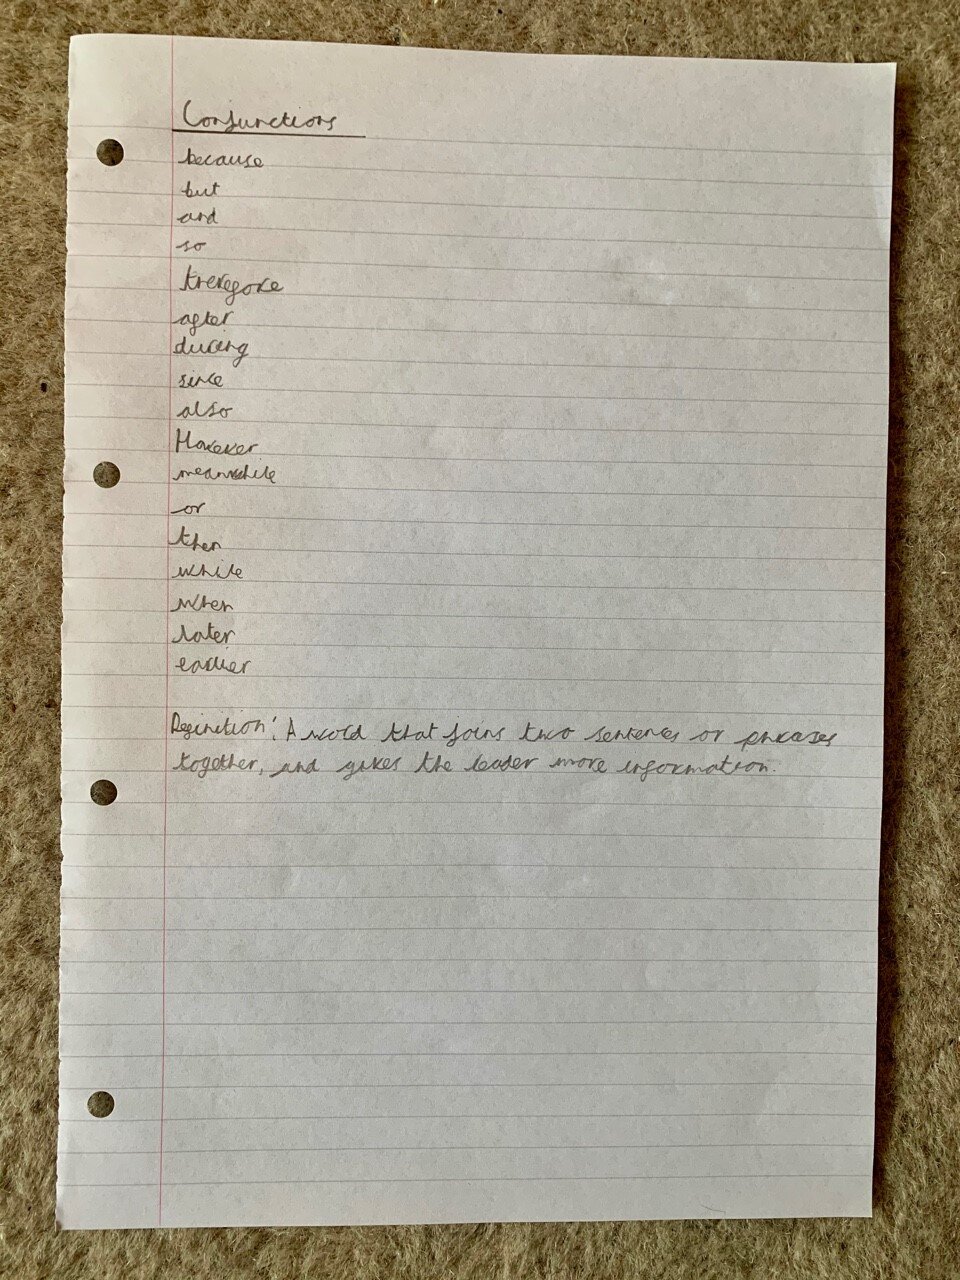 Conjunctions
because
but
and
so
therefore
after
during
since
also
However
meanwhile
or
then
while
when
later
earlier
Definition: A word that joins two sentences or phrases
together, and gives the reader more information.